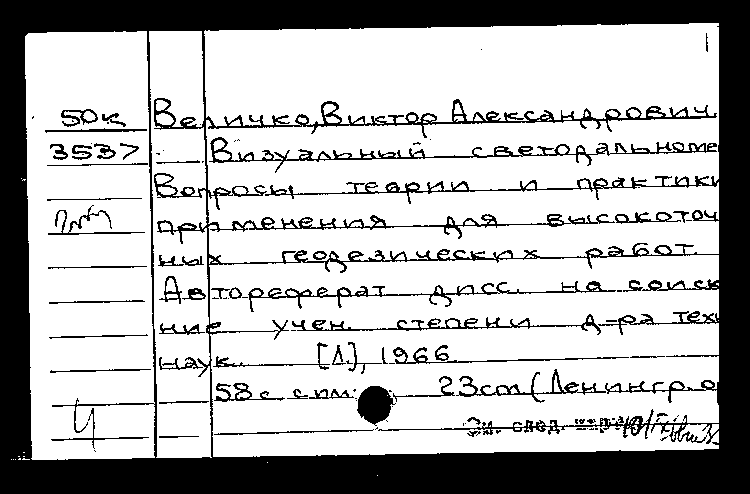 50к Величко, Виктор Александрович.
3537 Визуальный светодальноме
Вопросы теарии и практики
применения для высокоточ
ных геодезических работ.
Автореферат дисс. на соиск
ние учен. степени д-ра техн
наук. [Л.], 1966
58 с. с илл. 23 cm (Ленингр. о
Ч См. след.